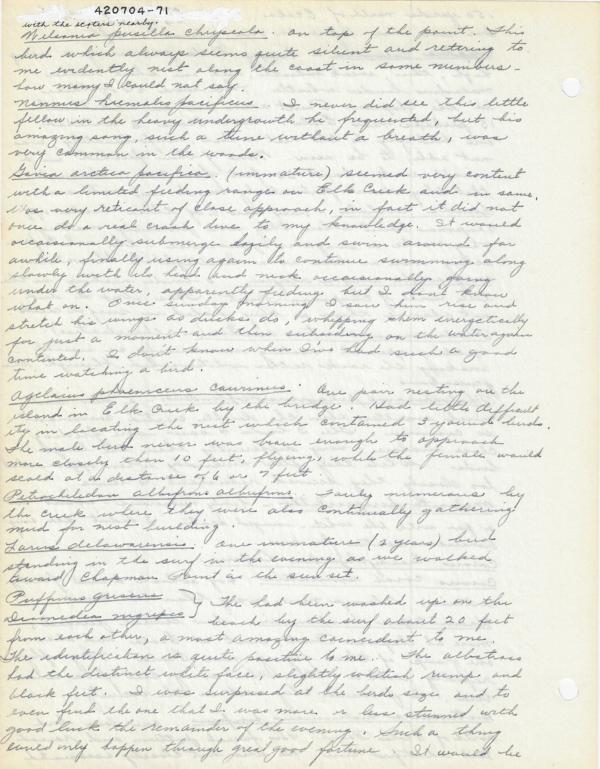 420704-71
with the scoters nearby.
Wilsonia pusilla chryseola. on top of the point. This
bird which always seems quite silent and retiring to
me evidently nest along the coast in some numbers-
how many I could not say.
Nannus hiemalis pacificus. I never did see this little
fellow in the heavy undergrowth he frequented, but his
amazing song, such a time without a breath, was
very common in the woods.
Gavia arctica pacifica. (immature) seemed very content
with a limited feeding range on Elk Creek and in same.
Was very reticant of close approach, in fact it did not
once do a real crash dive to my knowledge. It would
occaisionally submerge lazily and swim around for
awhile, finally rising again to continue swimming along
slowly with its head and neck occaisionally going
under the water, apparently feeding but I don't know
what on. Once Sunday morning I saw him rise and
stretch his wings as ducks do, whipping them energetically
for just a moment and then subsiding on the water again
contented. I don't know when I've had such a good
time watching a bird.
Agelaius phoeniceus caurinus. One pair nesting on the
island in Elk Creek by the bridge. Had little difficult
ity in locating the nest which contained 3 young birds.
The male bird never was brave enough to approach
more closely than 10 feet, flying, while the female would
scold at a distance of 6 or 7 feet
Petrochelidon albifrons albifrons. Fairly numerous by
the creek where they were also continually gathering
mud for nest building.
Larus delawarensis. One immature (2 years) bird
standing in the surf in the evening as we walked
toward Chapman Point as the sun set.
Puffinus griseus
Diomedea nigripes } The had been washed up on the
beach by the surf about 20 feet
from each other, a most amazing coincident to me.
The identification is quite positive to me. The albatross
had the distinct white face, slightly whitish rump and
black feet. I was surprised at the birds size and to
even find the one that I was more or less stunned with
good luck the remainder of the evening. Such a thing
could only happen through great good fortune. It would be